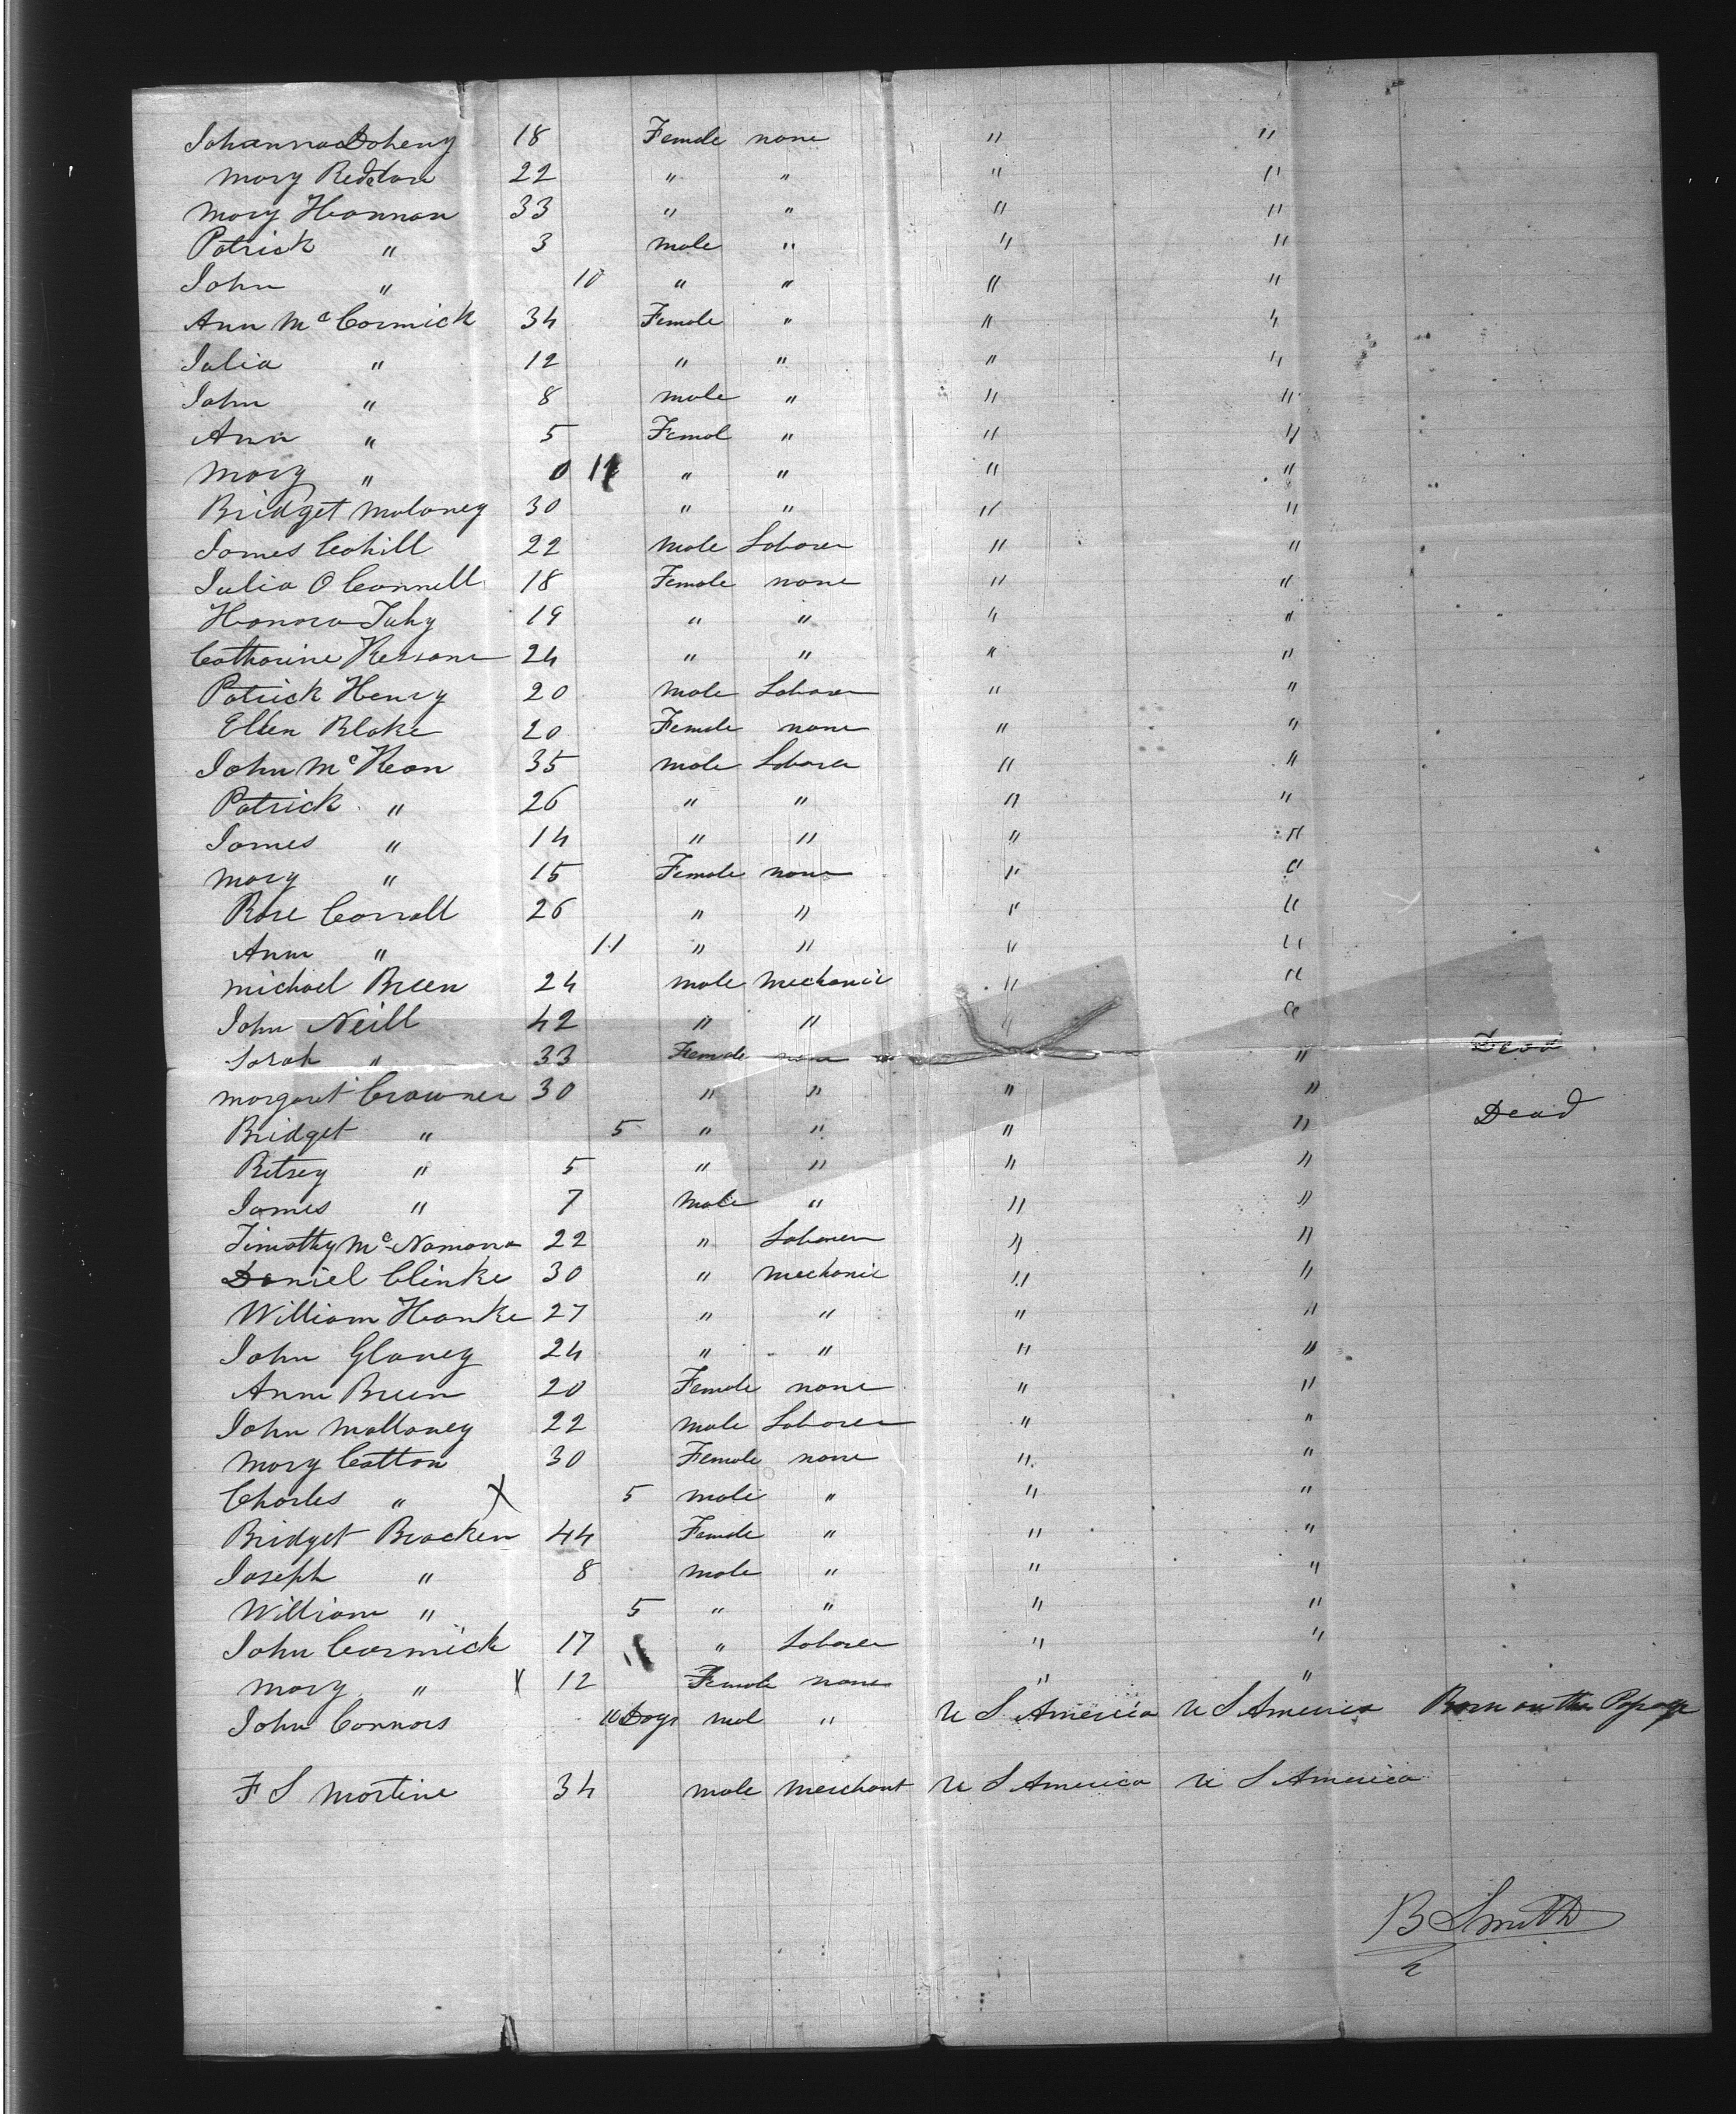 Johanna Doheny 18 Female none " "
Mary Reddan 22 " " " "
Mary Hannan 33 " " " "
Patrick " 3 male " " "
John " 10 " " " "
Ann McCormick 34 Female " " "
Julia " 12 " " " "
John " 8 male " " "
Ann " 5 Femal " " "
Mary " 0 11 " " " "
Bridget Maloney 30 " " " "
James Cahill 22 male Laborer " "
Julia O Connell 18 Female none " "
Hanora Tuhy 19 " " " "
Catharine 24 " " " "
Patrick Henry 20 male Laborer " "
Ellen Blake 20 Female none " "
John McKeon 35 male Laborer " "
Patrick " 26 " " " "
James " 14 " " " "
Mary " 15 Female none " "
Rose Carroll 26 " " " "
Ann " 11 " " " "
Michael Breen 24 male mechanic " "
John Neill 42 " " " "
Sarah " 33 Female none " Dead
Margaret Crawner 30 " " " "
Bridget " 5 " " " " Dead
Betsey " 5 " " " "
James " 7 male " " "
Timothy McNamara 22 " Laborer " "
Daniel Clinke 30 " mechanic " "
William Hanke 27 " " " "
John Glaney 24 " " " "
Ann Breen 20 Female none " "
John Mallaney 22 male Laborer " "
Mary Catton 30 Female none " "
Charles " X 5 male " " "
Bridget Bracken 44 Female " " "
Joseph " 8 male " " "
William " 5 " " " "
John Cormick 17 " Laborer " "
Mary " X 12 Female none " "
John Connors 10 Days mal " U S America U S America Born on the Pasage
F S Martine 34 male merchant U S America U S America
B Smith